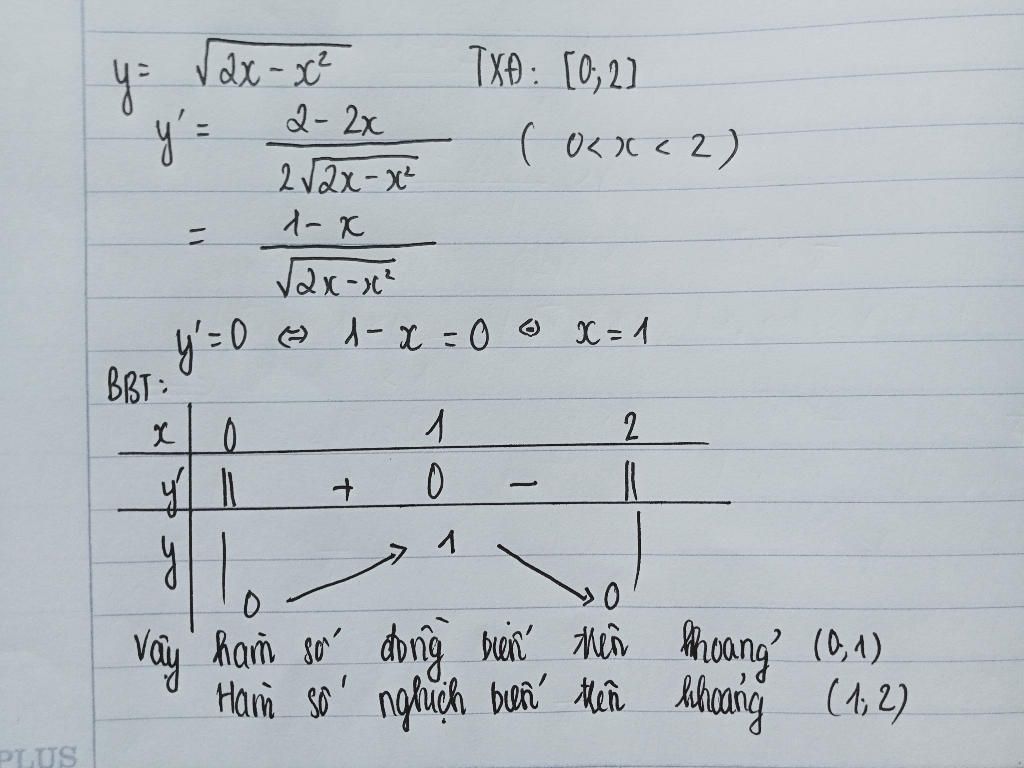 y = √(2x - x²) TXĐ: [0; 2]
y' = (2 - 2x) / (2√(2x - x²)) (0 < x < 2)
= (1 - x) / √(2x - x²)
y' = 0 ⇔ 1 - x = 0 ⇔ x = 1
BBT:
x | 0 1 2
y' | || + 0 - ||
y | | 0 ↗ 1 ↘ 0 |
Vậy hàm số đồng biến trên khoảng (0, 1)
Hàm số nghịch biến trên khoảng (1; 2)
PLUS